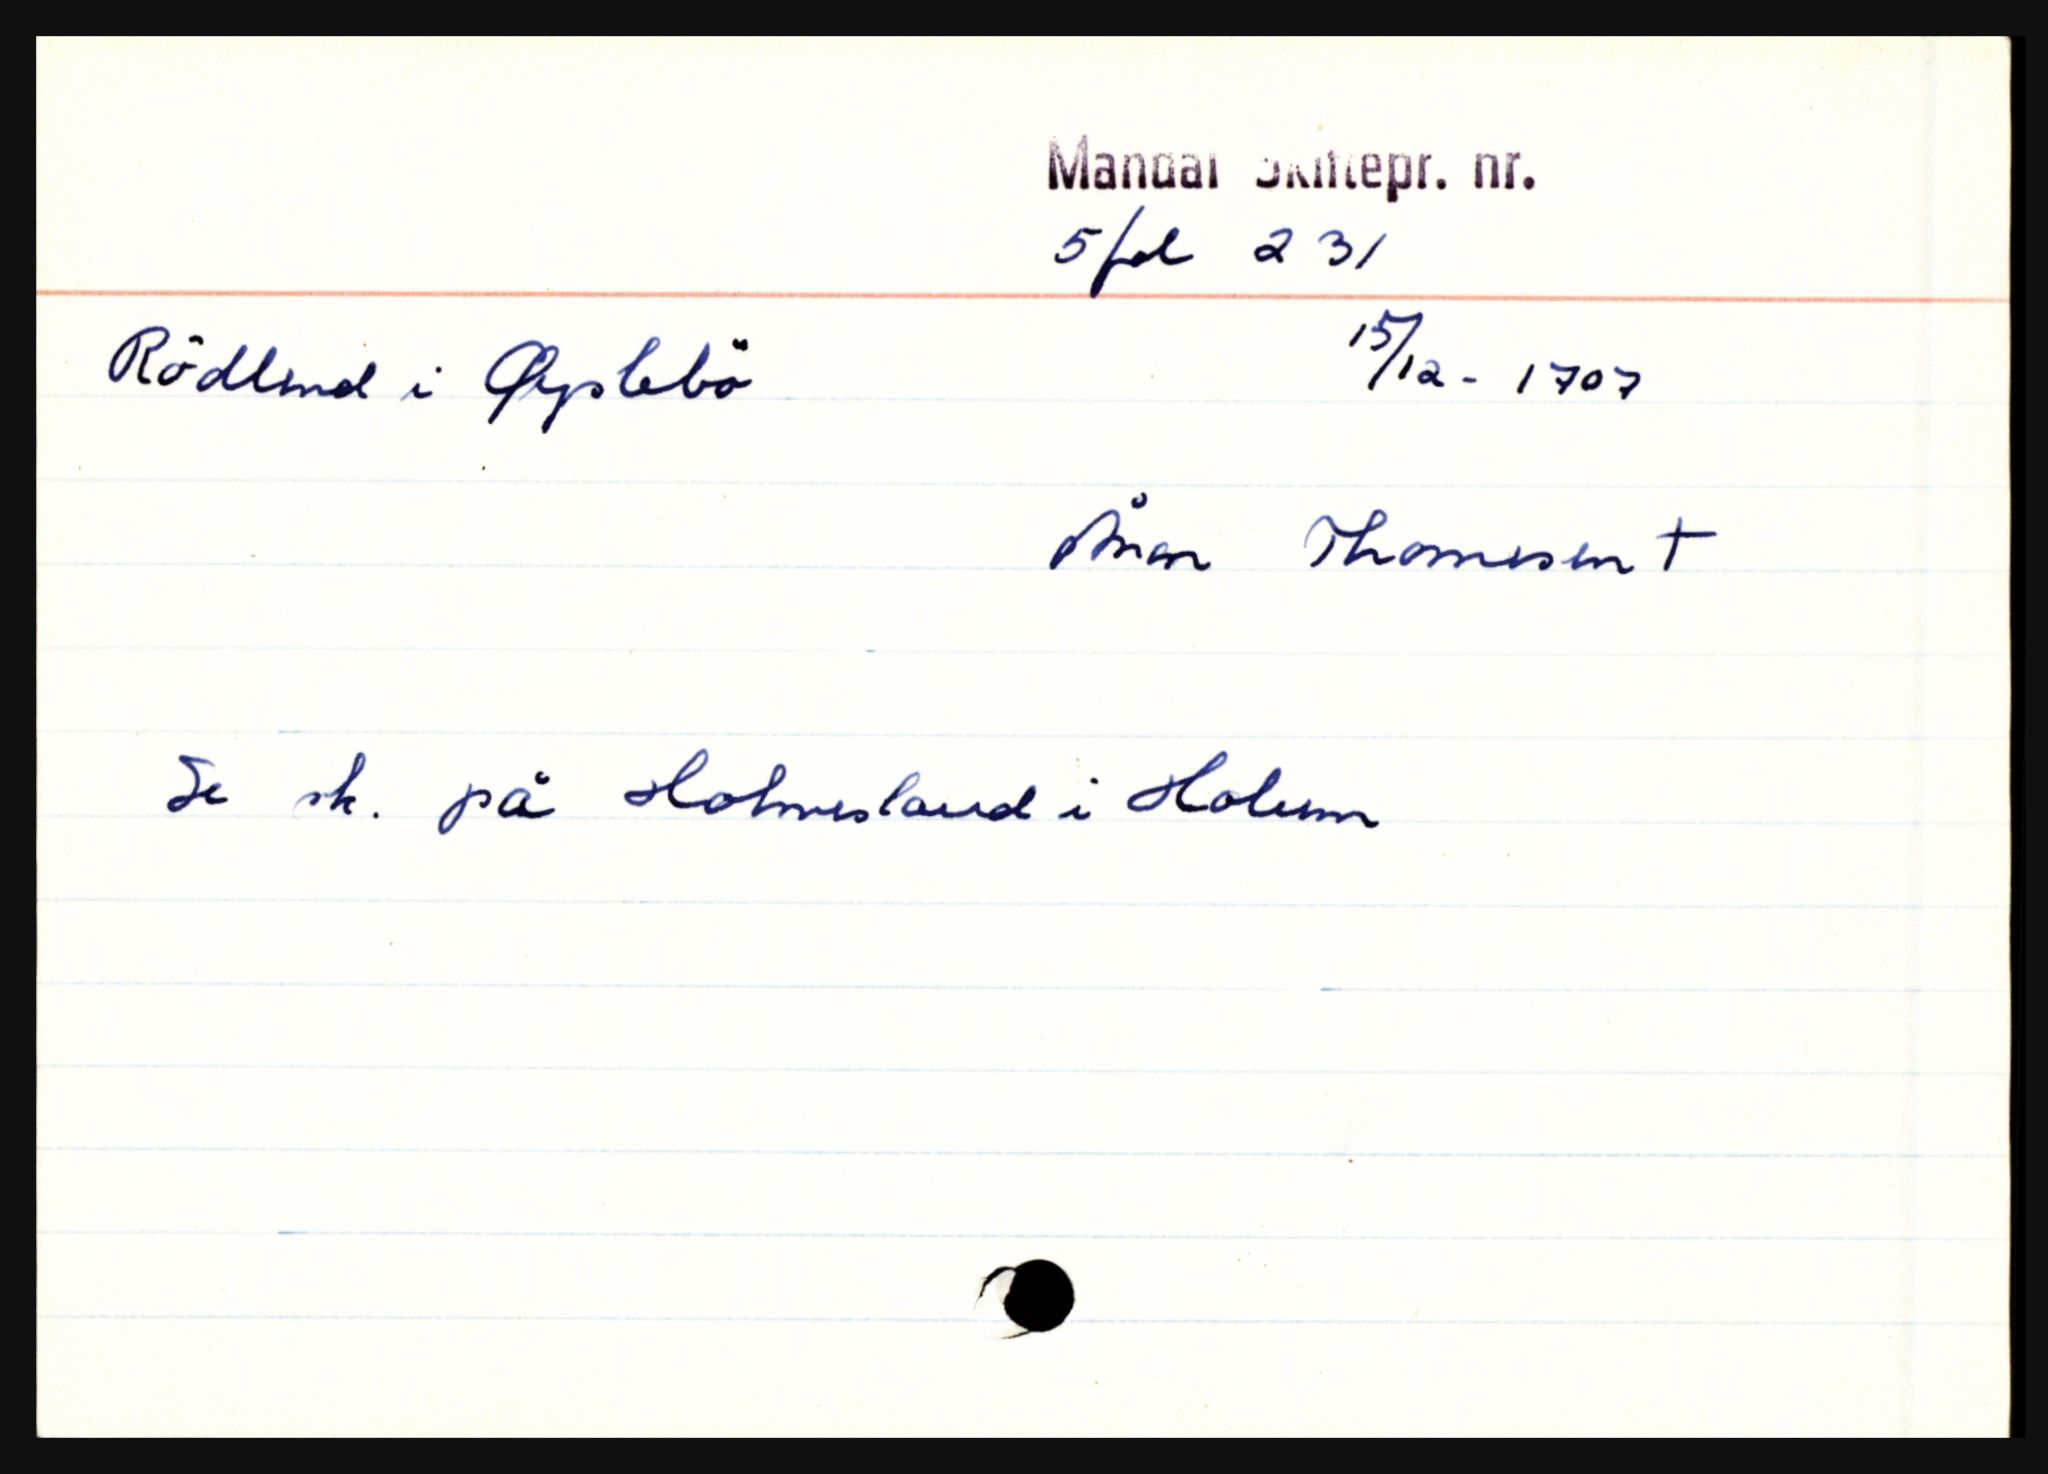 Mandal Skiftepr. nr.
5 fol 231
Rödlend i Øyslebö 15/12 - 1707
Ånen Thomesen †
Se sk. på Holmesland i Holum